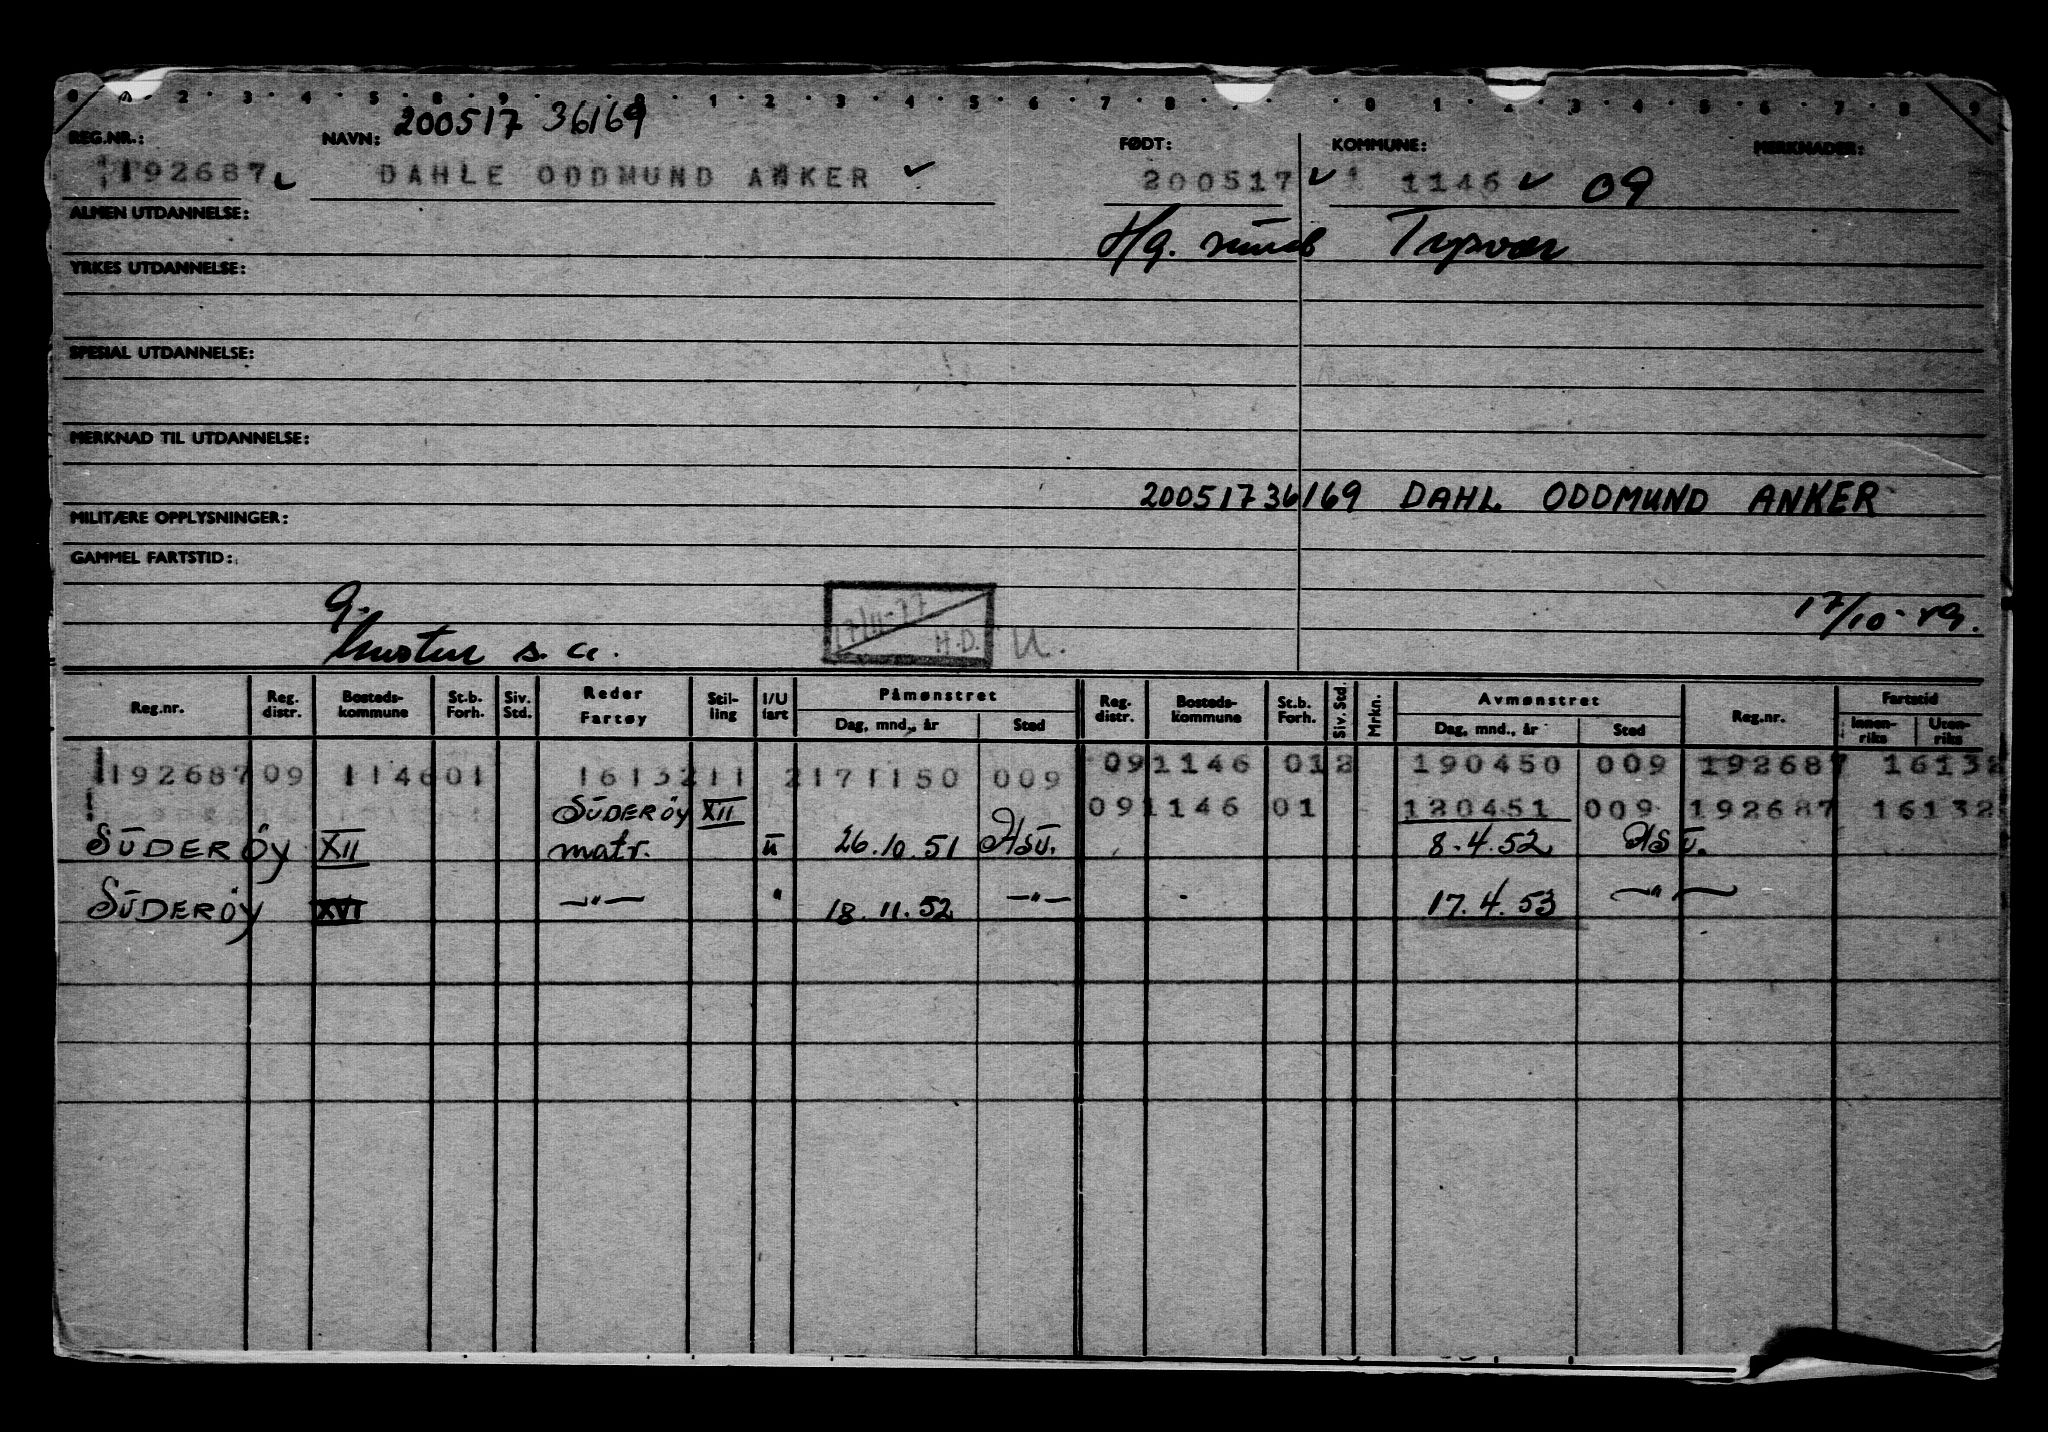 0 2 3 4 5 6 9 0 1 2 3 4 5 6 7 8 0 1 2 3 4 5 6 7 8 9
200517 36169
REG.NR.: NAVN: FØDT: KOMMUNE: MERKNADER:
192687 DAHLE ODDMUND ANKER ✓ 200517 ✓ 1146 ✓ 09
ALMEN UTDANNELSE: Hg. Tysvær
YRKES UTDANNELSE:
SPESIAL UTDANNELSE:
MERKNAD TIL UTDANNELSE:
20051736169 DAHL ODDMUND ANKER
MILITÆRE OPPLYSNINGER:
GAMMEL FARTSTID:
9. 17/11-77 17/10-49.
s. a. H.D. U.
Reg.nr. Reg. distr. Bosteds-kommune St.b. Forh. Siv. Std. Reder Fartøy Stil-ling I/U fart Påmønstret Dag, mnd., år Sted Reg. distr. Bosteds-kommune St.b. Forh. Siv. Std. Mrkn. Avmønstret Dag, mnd., år Sted Reg.nr. Fartstid Innen-riks Uten-riks
192687 09 1146 01 1613211 2171150 009 091146 012 190450 009 192687 16132
SÜDERÖY XII 091146 01 120451 009 192687 16132
SÜDERÖY XII matr. u 26.10.51 HSV. 8.4.52 HSV.
SÜDERÖY XVI —"— " 18.11.52 —"— 17.4.53 —"—